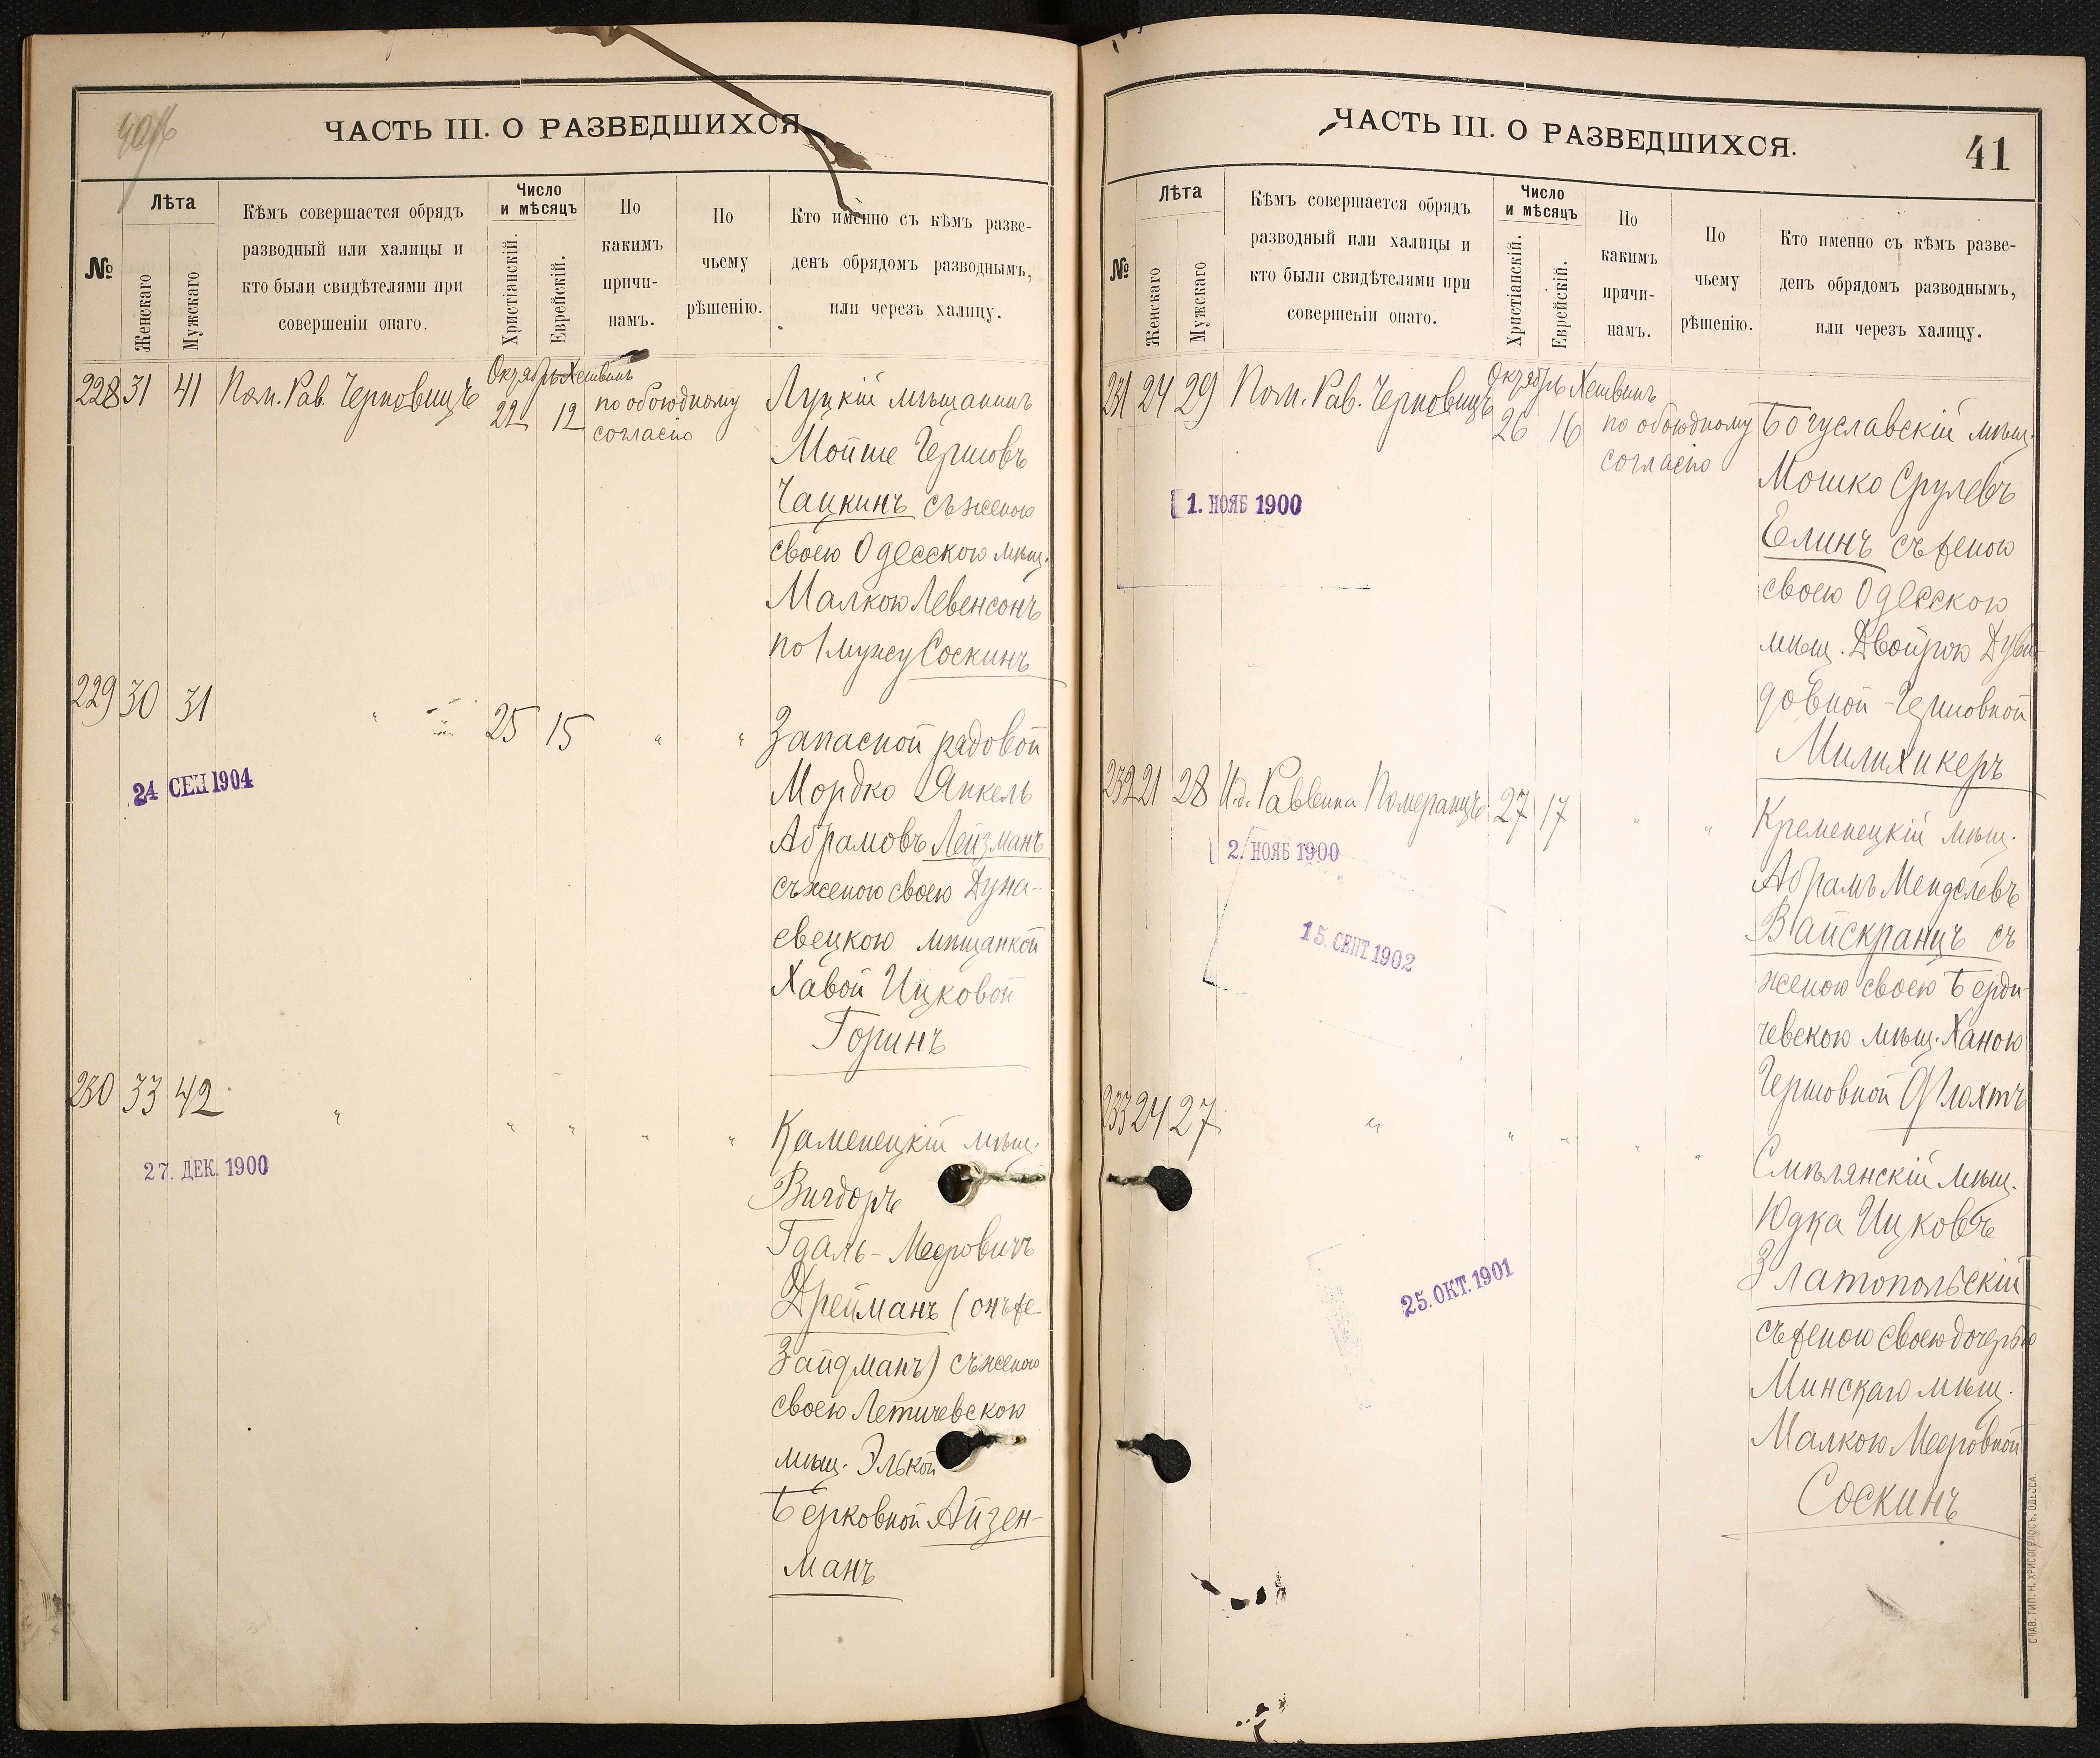 ЧАСТЬ III. О РАЗВЕДШИХСЯ.
№
Лѣта
Женскаго
Мужскаго
Кѣмъ совершается обрядъ
разводный или халицы и
кто были свидѣтелями при
совершеніи онаго.
Число
и мѣсяцъ
Христіанскій.
Еврейскій.
По
какимъ
причи-
намъ.
По
чьему
рѣшенію.
Кто именно съ кѣмъ разве-
денъ обрядомъ разводнымъ,
или черезъ халицу.
Октябрь Хешвинъ
228 31 41 Пом. Рав. Черновицъ 22 12 по обоюдному
согласію
Луцкій мѣщанинъ
Мойше Гершовъ
Чацкинъ съ женою
своею Одесскою мѣщ.
Малкою Левенсонъ
по I мужу Соскинъ
229 30 31 " " 25 15 " "
24 СЕН 1904
Запасной рядовой
Мордко Янкель
Абрамовъ Лейзманъ
съ женою своею Дуна-
евецкою мѣщанкой
Хавой Ицковой
Горинъ
230 33 42 " " " " "
27. ДЕК. 1900
Каменецкій мѣщ.
Вигдоръ
Гдаль-Мееровичъ
Дрейманъ (онъ же
Зайдманъ) съ женою
своею Летичевскою
мѣщ. Элькой
Берковной Айзен-
манъ
ЧАСТЬ III. О РАЗВЕДШИХСЯ.
41
№
Лѣта
Женскаго
Мужскаго
Кѣмъ совершается обрядъ
разводный или халицы и
кто были свидѣтелями при
совершеніи онаго.
Число
и мѣсяцъ
Христіанскій.
Еврейскій.
По
какимъ
причи-
намъ.
По
чьему
рѣшенію.
Кто именно съ кѣмъ разве-
денъ обрядомъ разводнымъ,
или черезъ халицу.
Октябрь Хешвинъ
231 24 29 Пом. Рав. Черновицъ 26 16 по обоюдному
согласію
1. НОЯБ 1900
Богуславскій мѣщ.
Мошко Срулевъ
Елинъ съ женою
своею Одесскою
мѣщ. Двойрою Дуви-
довной-Гершовной
Милихикеръ
232 21 28 И.д. Раввина Померанцъ 27 17 " "
2. НОЯБ 1900
15. СЕНТ 1902
Кременецкій мѣщ.
Абрамъ Менделевъ
Вайскранцъ съ
женою своею Берди-
чевскою мѣщ. Ханою
Гершовной Флохтъ
233 24 27 " " " " "
25. ОКТ. 1901
Смѣлянскій мѣщ.
Юдка Ицковъ
Златопольскій
съ женою своею дочерью
Минскаго мѣщ.
Малкою Мееровной
Соскинъ
СЛАВ. ТИП. Н. ХРИСОГЕЛОСЪ, ОДЕССА.